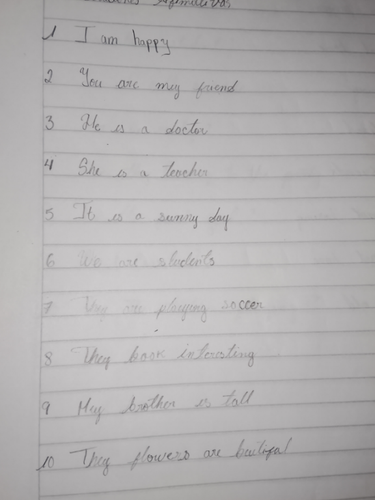 1 I am happy
2 You are my friend
3 He is a doctor
4 She is a teacher
5 It is a sunny day
6 We are students
7 They are playing soccer
8 They book interesting
9 My brother is tall
10 They flowers are